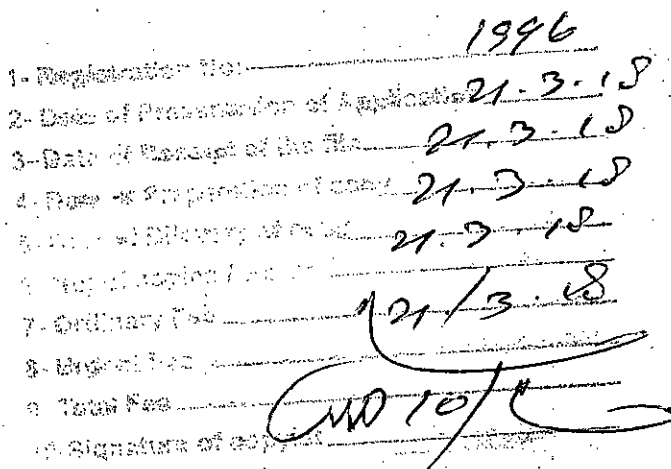 1- Registration No. 1996
2- Date of Presentation of Application 21.3.18
3- Date of Receipt of the file 21.3.18
4- Date of Preparation of copy 21.3.18
5- Date of Dilivery of copy 21.3.18
7- Ordinary Fee 21/3.18
8- Urgent Fee
9- Total Fee
10- Signature of copyist